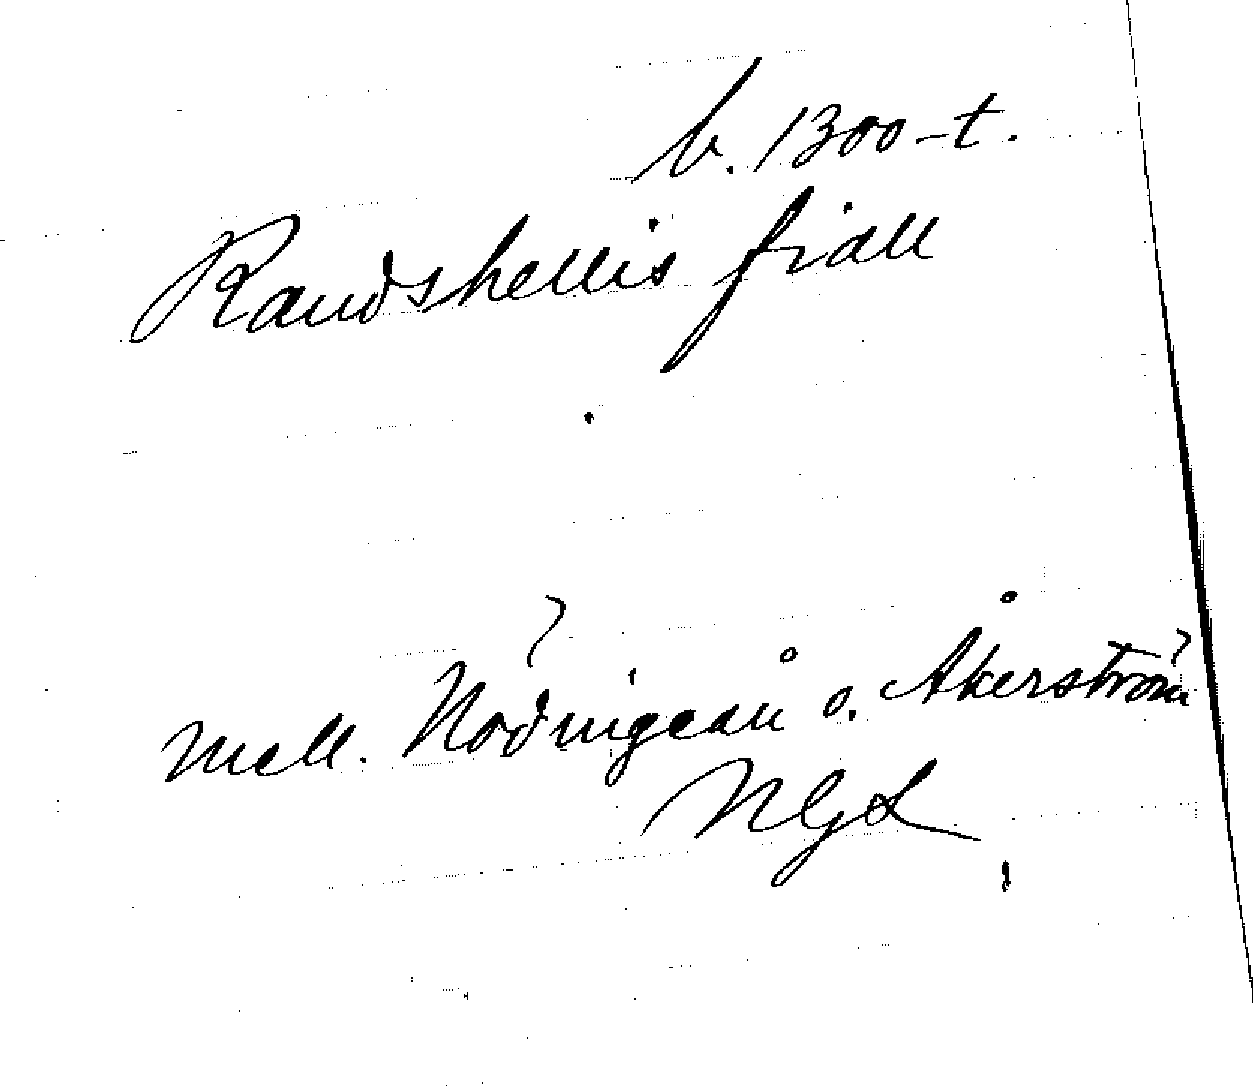 b. 1300-t.
Raudshellis fiall
mell. Nödingeån o. Åkerström
NGL